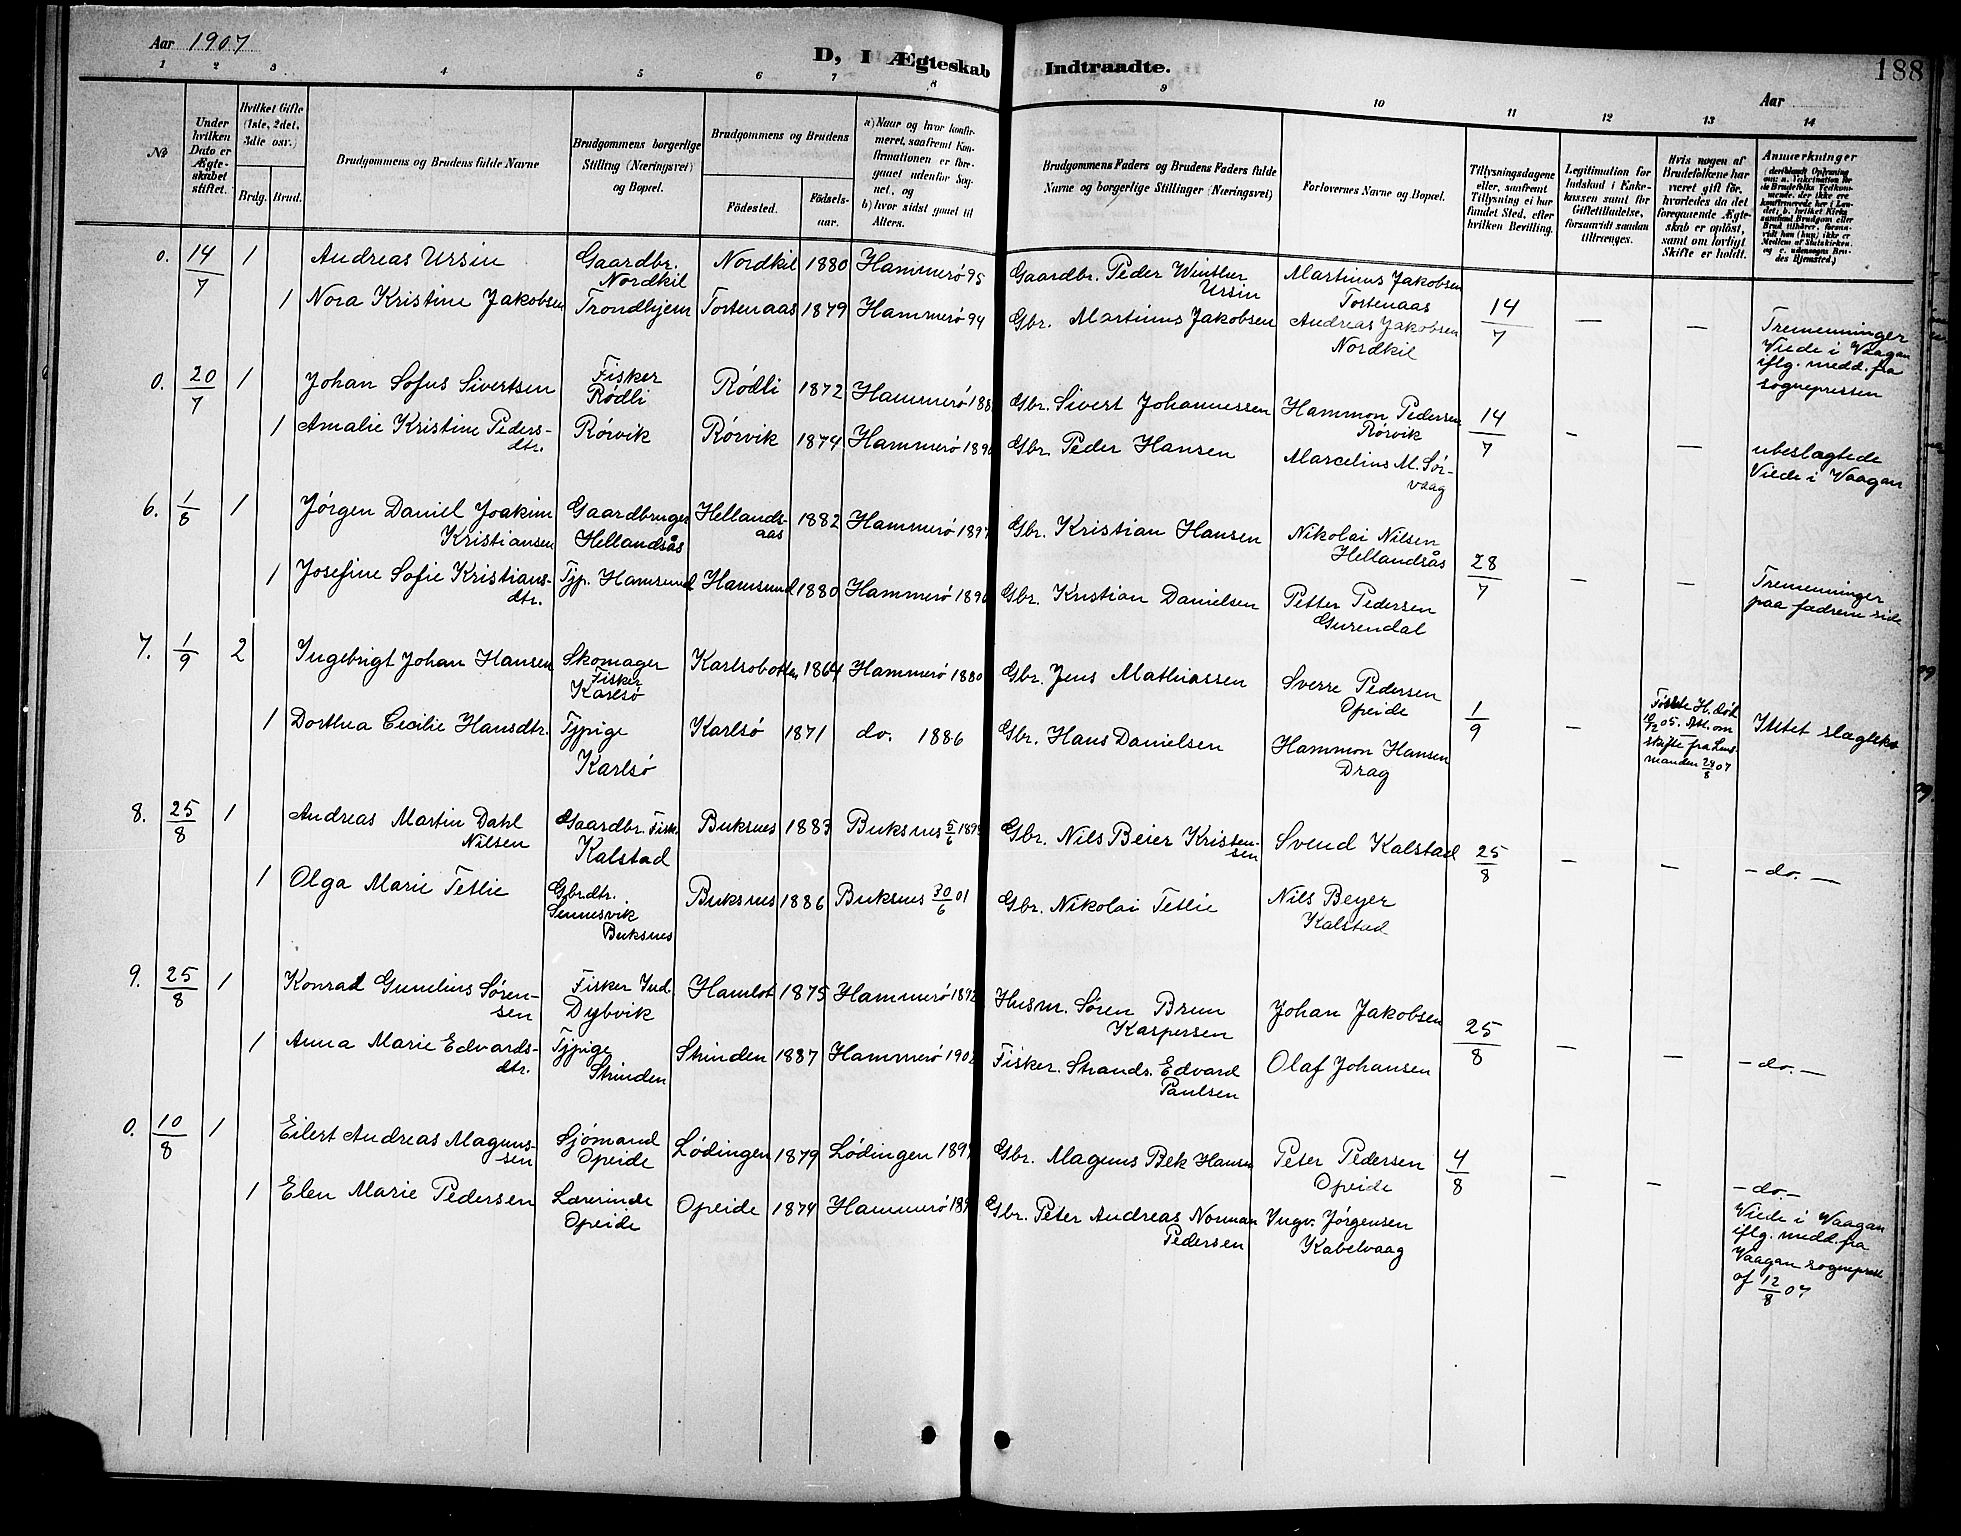 Aar 1907
D, I Ægteskab Indtraadte.
188
Aar
1 2 3 4 5 6 7 8 9 10 11 12 13 14
No
Under hvilken Dato er Ægteskabet stiftet.
Hvilket Gifte (1ste, 2det, 3die osv.)
Brdg. Brud.
Brudgommens og Brudens fulde Navne
Brudgommens borgerlige Stilling (Næringsvei) og Bopæl.
Brudgommens og Brudens
Fødested. Fødselsaar.
a) Naar og hvor konfirmeret, saafremt Konfirmationen er foregaaet udenfor Sognet, og
b) hvor sidst gaaet til Alters.
Brudgommens Faders og Brudens Faders fulde Navne og borgerlige Stillinger (Næringsvei)
Forlovernes Navne og Bopæl.
Tillysningsdagene eller, saafremt Tillysning ei har fundet Sted, efter hvilken Bevilling.
Legitimation for Indskud i Enkekassen samt for Giftetilladelse, forsaavidt saadan tiltrænges.
Hvis nogen af Brudefolkene har været gift før, hvorledes da det foregaaende Ægteskab er opløst, samt om lovligt Skifte er holdt.
Anmærkninger
0. 14/7 1 Andreas Ursin Gaardbr. Nordkil Nordkil 1880 Hammerø 95 Gaardbr. Peder Winther Ursin Martinus Jakobsen Tortenaas
1 Nora Kristine Jakobsen Trondhjem Tortenaas 1879 Hammerø 94 Gbr. Martinus Jakobsen Andreas Jakobsen Nordkil 14/7 — — Tremenninger Viede i Vaagan iflg. medd. fra sognepresten
0. 20/7 1 Johan Sofus Sivertsen Fisker Rødli Rødli 1872 Hammerø 188 Gbr. Sivert Johannessen Hammon Pedersen Rørvik 14/7
1 Amalie Kristine Pedersdtr. Rørvik Rørvik 1874 Hammerø 189 Gbr. Peder Hansen Marcelius M. Sørvaag — — ubeslægtede Viede i Vaagan
6. 1/8 1 Jørgen Daniel Joakim Kristiansen Gaardbruger Hellandsås Hellandsaas 1882 Hammerø 1897 Gbr. Kristian Hansen Nikolai Nilsen Hellandsås 28/7
1 Josefine Sofie Kristiansdtr. Tjp. Hamsund Hamsund 1880 Hammerø 1896 Gbr. Kristian Danielsen Petter Pedersen — — Tremenninger paa fædrene side
7. 1/9 2 Ingebrigt Johan Hansen Skomager Fisker Karlsø Karlsobotten 1864 Hammerø 1880 Gbr. Jens Mathiassen Sverre Pedersen Opeide 1/9
1 Dorthea Cecilie Hansdtr. Tjpige Karlsø Karlsø 1871 do. 1886 Gbr. Hans Danielsen Hammon Hansen Drag — Første H. død 10/2 05. Att. om skifte fra Lensmanden 24/8 07 Intet slægtsk
8. 25/8 1 Andreas Martin Dahl Nilsen Gaardbr. Fisk. Kalstad Buksnes 1883 Buksnes 5/6 189 Gbr. Nils Beier Kristensen Svend Kalstad 25/8
1 Olga Marie Tetlie Gbrdtr. Sennesvik Buksnes Buksnes 1886 Buksnes 30/6 01 Gbr. Nikolai Tetlie Nils Beyer Kalstad — — — do. —
9. 25/8 1 Konrad Gunelius Sørensen Fisker Ind. Dybvik Hamlot 1875 Hammerø 1892 Husm. Søren Brun Kaspersen Johan Jakobsen 25/8
1 Anna Marie Edvardsdtr. Tjpige Strinden Strinden 1887 Hammerø 1902 Fisker. Strands. Edvard Paulsen Olaf Johansen — — — do. —
0. 10/8 1 Eilert Andreas Magnussen Sjømand Opeide Lødingen 1879 Lødingen 189 Gbr. Magnus Bek Hansen Peter Pedersen Opeide 4/8
1 Elen Marie Pedersen Lærerinde Opeide Opeide 1874 Hammerø 189 Gbr. Peter Andreas Norman Pedersen Ingv. Jørgensen Kabelvaag — — — do. — Viede i Vaagan iflg. medd. fra Vaagan sogneprest af 12/8 07